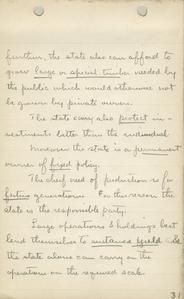 further, the state also can afford to
grow large or special timber needed by
the public which would otherwise not
be grown by private owners.
The state can also protect in-
vestments better than the individual
Moreover the state is a permanent
owner of fixed policy.
The chief need of production is for
future generations. For this reason the
state is the responsible party.
Large operations & holdings best
lend themselves to sustained yield
the state alone can carry on the
operations on the required scale.
31